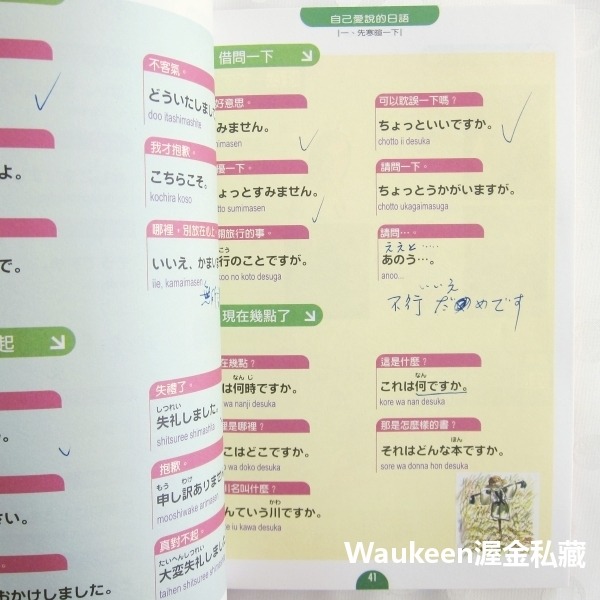 自己愛說的日語
一、先寒暄一下
不客氣。
どういたしまし
doo itashimashite
我才抱歉。
こちらこそ。
kochira koso
哪裡，別放在心上
いいえ、かまいま
iie, kamaimasen
よ。
で。
起
失禮了。
しつれい
失礼しました。
shitsuree shimashita
抱歉。
もう わけ
申し訳ありませ
mooshiwake arimasen
真對不起。
たいへんしつれい
大変失礼しました
taihen shitsuree shimas
さい。
おかけしました。
借問一下
好意思。
みません。
imasen
擾一下。
ょっとすみません。
otto sumimasen
關旅行的事。
こう
行のことですが。
koo no koto desuga
可以耽誤一下嗎？
ちょっといいですか。
chotto ii desuka
請問一下。
ちょっとうかがいますが。
chotto ukagaimasuga
請問…。
ええと……
あのう…。
anoo...
いいえ
不行 だめです
現在幾點了
在幾點？
なんじ
は何時ですか。
wa nanji desuka
裡是哪裡？
こはどこですか。
o wa doko desuka
川名叫什麼？
かわ
んていう川ですか。
te iu kawa desuka
這是什麼？
なん
これは何ですか。
kore wa nan desuka
那是怎麼樣的書？
ほん
それはどんな本ですか。
sore wa donna hon desuka
41
Waukeen渥金私藏